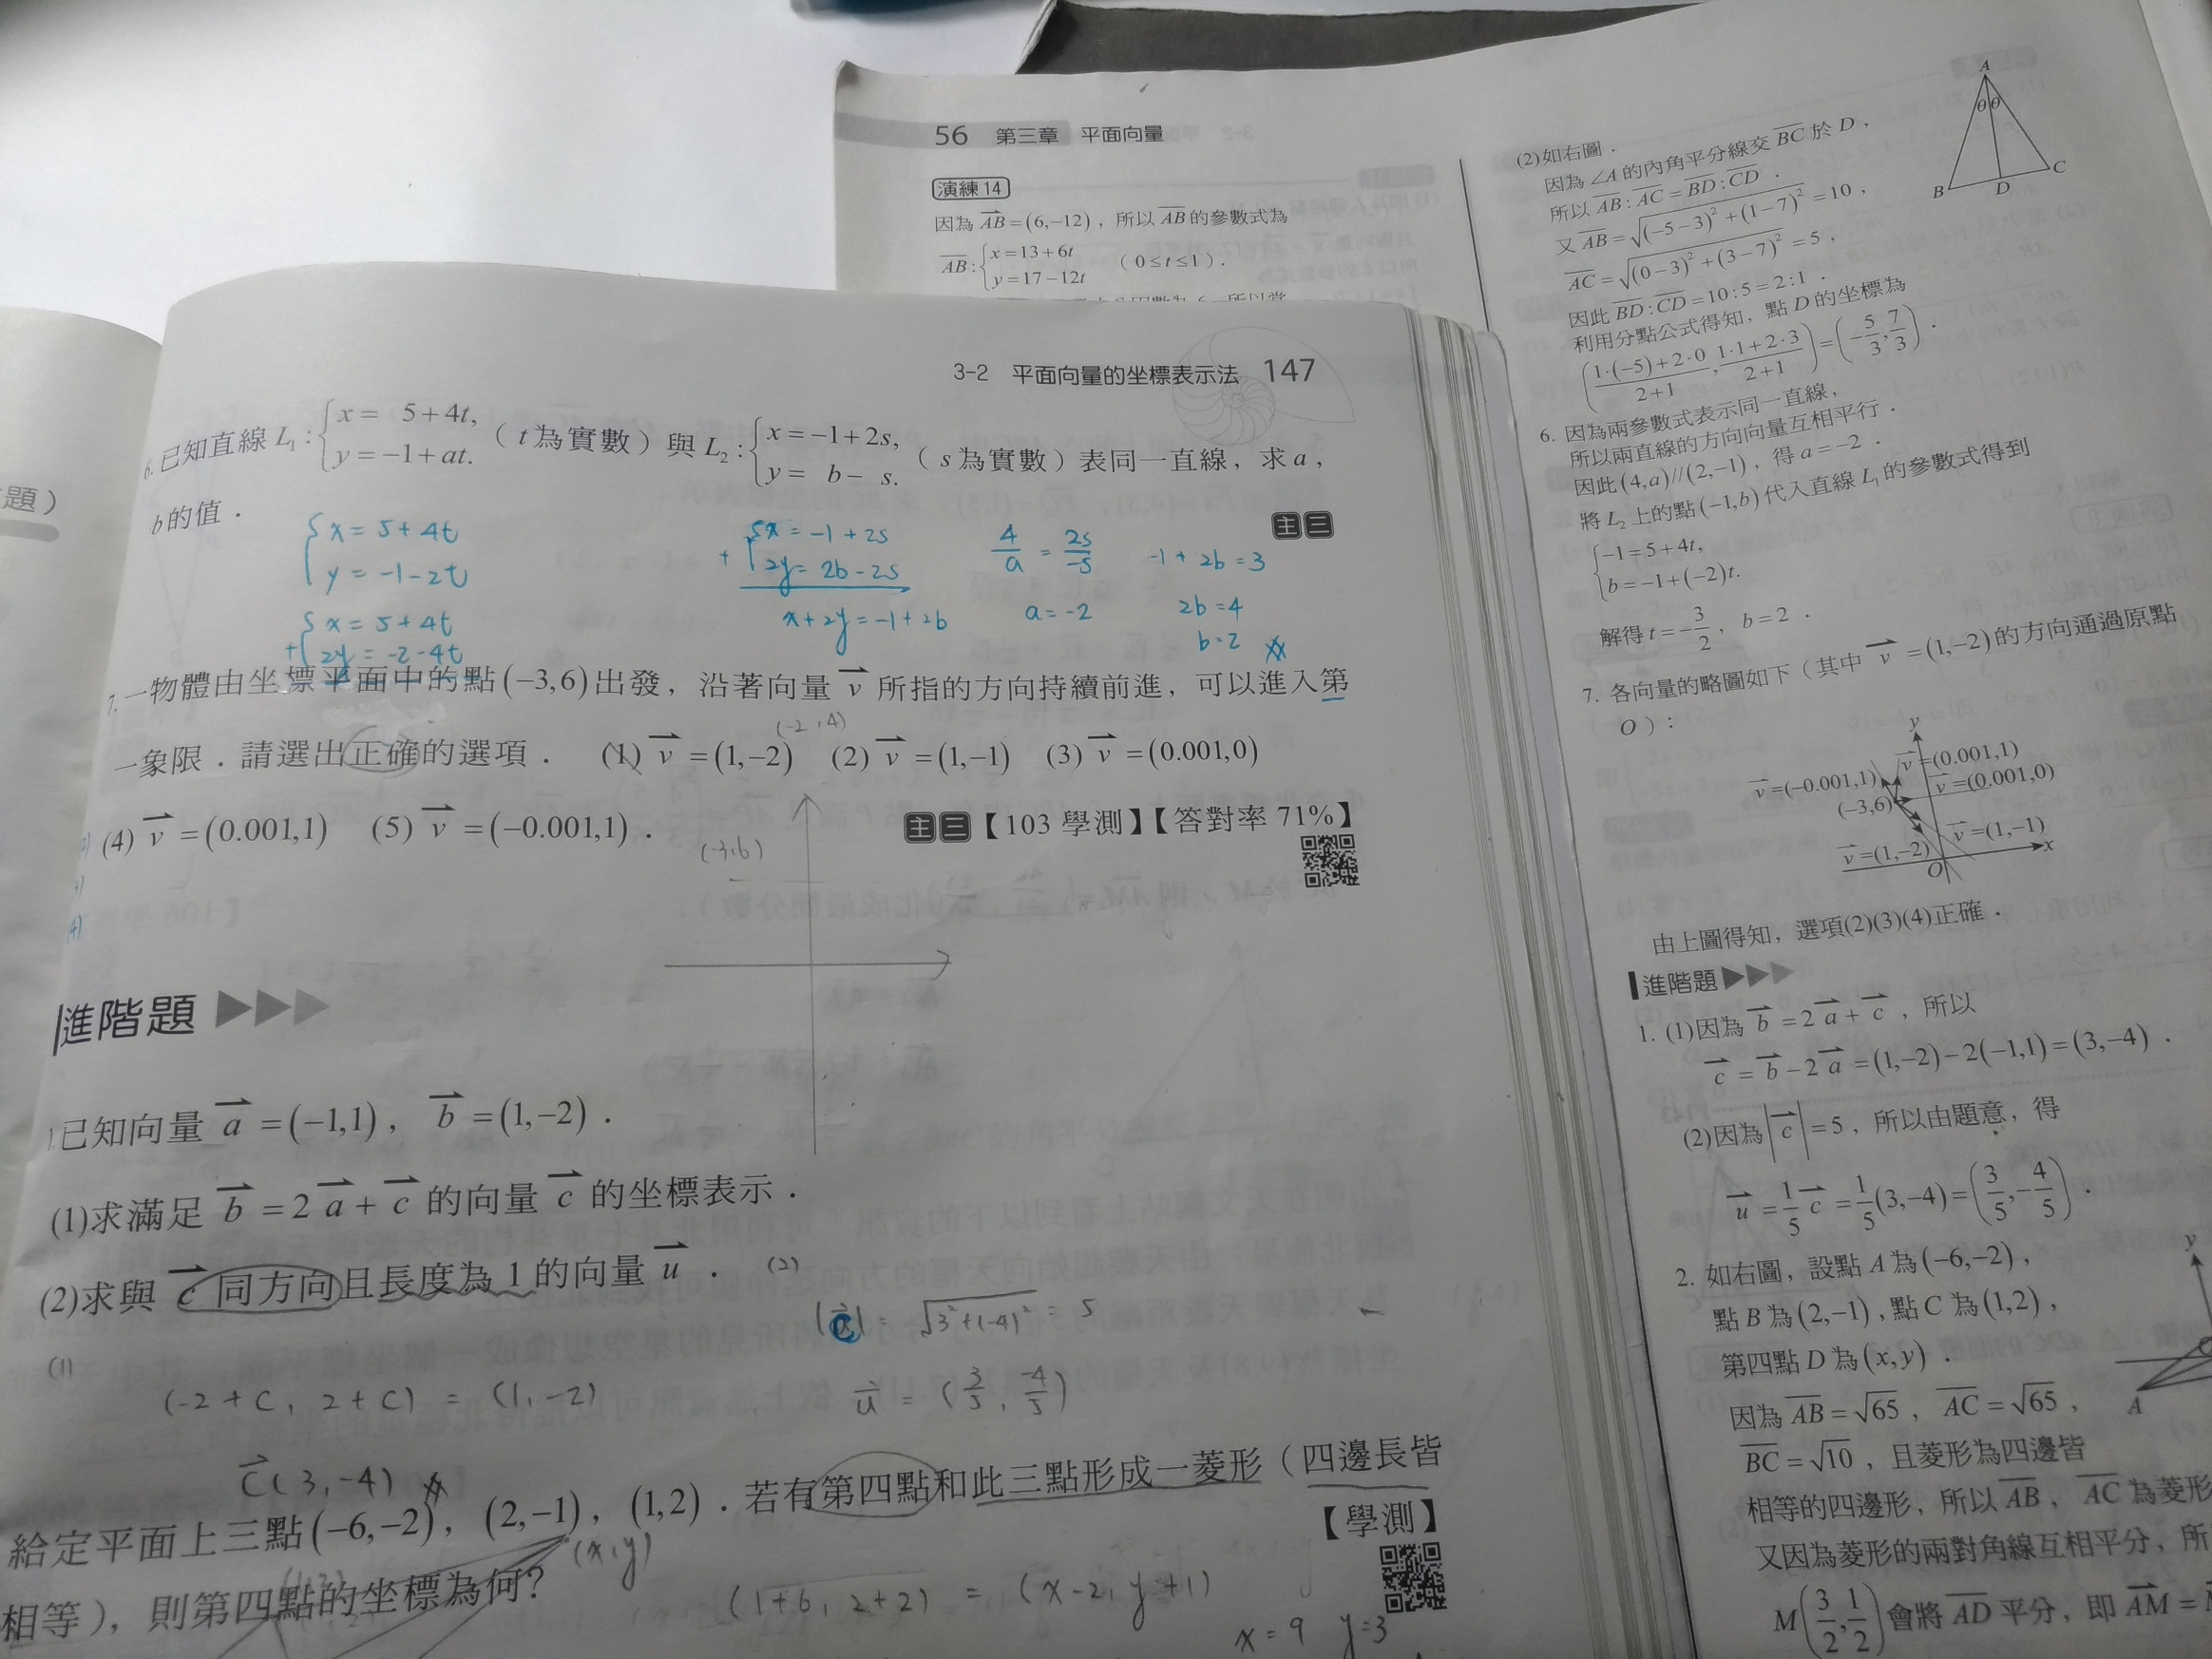 題）
3-2 平面向量的坐標表示法 147
6.已知直線 L₁:{x= 5+4t, y=-1+at.（t為實數）與 L₂:{x=-1+2s, y= b- s.（s為實數）表同一直線，求a，
b的值．
主三
{x=5+4t
y=-1-2t
{x=5+4t
+ 2y=-2-4t
{x=-1+2s
+ 2y=2b-2s
x+2y=-1+2b
4/a = 2s/-s
a=-2
-1+2b=3
2b=4
b=2
7.一物體由坐標平面中的點(-3,6)出發，沿著向量 v⃗ 所指的方向持續前進，可以進入第
一象限．請選出正確的選項． (1) v⃗=(1,-2) (2) v⃗=(1,-1) (3) v⃗=(0.001,0)
(-2,4)
(4) v⃗=(0.001,1) (5) v⃗=(-0.001,1)．
主三【103 學測】【答對率 71%】
(-3,6)
進階題
1.已知向量 a⃗=(-1,1)，b⃗=(1,-2)．
(1)求滿足 b⃗=2a⃗+c⃗ 的向量 c⃗ 的坐標表示．
(2)求與 c⃗ 同方向且長度為 1 的向量 u⃗．
(2)
|c⃗| = √(3²+(-4)²) = 5
u⃗ = (3/5, -4/5)
(1)
(-2+c, 2+c) = (1,-2)
c⃗(3,-4)
給定平面上三點(-6,-2)，(2,-1)，(1,2)．若有第四點和此三點形成一菱形（四邊長皆
【學測】
相等），則第四點的坐標為何？
(x,y)
(1+6, 2+2) = (x-2, y+1)
x=9 y=3
56 第三章 平面向量
演練 14
因為 AB⃗=(6,-12)，所以 AB̅ 的參數式為
AB̅:{x=13+6t y=17-12t （0≤t≤1）．
(2)如右圖．
因為 ∠A 的內角平分線交 BC̅ 於 D，
所以 AB̅:AC̅=BD̅:CD̅．
又 AB̅=√((-5-3)²+(1-7)²)=10，
AC̅=√((0-3)²+(3-7)²)=5，
因此 BD̅:CD̅=10:5=2:1．
利用分點公式得知，點 D 的坐標為
((1·(-5)+2·0)/(2+1), (1·1+2·3)/(2+1))=(-5/3, 7/3)．
A
θ θ
B D C
6. 因為兩參數式表示同一直線，
所以兩直線的方向向量互相平行．
因此(4,a)//(2,-1)，得 a=-2．
將 L₂ 上的點(-1,b)代入直線 L₁ 的參數式得到
{-1=5+4t,
b=-1+(-2)t.
解得 t=-3/2，b=2．
7. 各向量的略圖如下（其中 v⃗=(1,-2)的方向通過原點
O）：
y
v⃗=(0.001,1)
v⃗=(-0.001,1)
v⃗=(0.001,0)
(-3,6)
v⃗=(1,-1)
v⃗=(1,-2)
O
x
由上圖得知，選項(2)(3)(4)正確．
進階題
1. (1)因為 b⃗=2a⃗+c⃗，所以
c⃗=b⃗-2a⃗=(1,-2)-2(-1,1)=(3,-4)．
(2)因為|c⃗|=5，所以由題意，得
u⃗=1/5 c⃗=1/5(3,-4)=(3/5,-4/5)．
2. 如右圖，設點 A 為(-6,-2)，
點 B 為(2,-1)，點 C 為(1,2)，
第四點 D 為(x,y)．
因為 AB̅=√65，AC̅=√65，
BC̅=√10，且菱形為四邊皆
相等的四邊形，所以 AB̅，AC̅ 為菱形
又因為菱形的兩對角線互相平分，所
M(3/2,1/2)會將 AD̅ 平分，即 AM⃗=
y
A